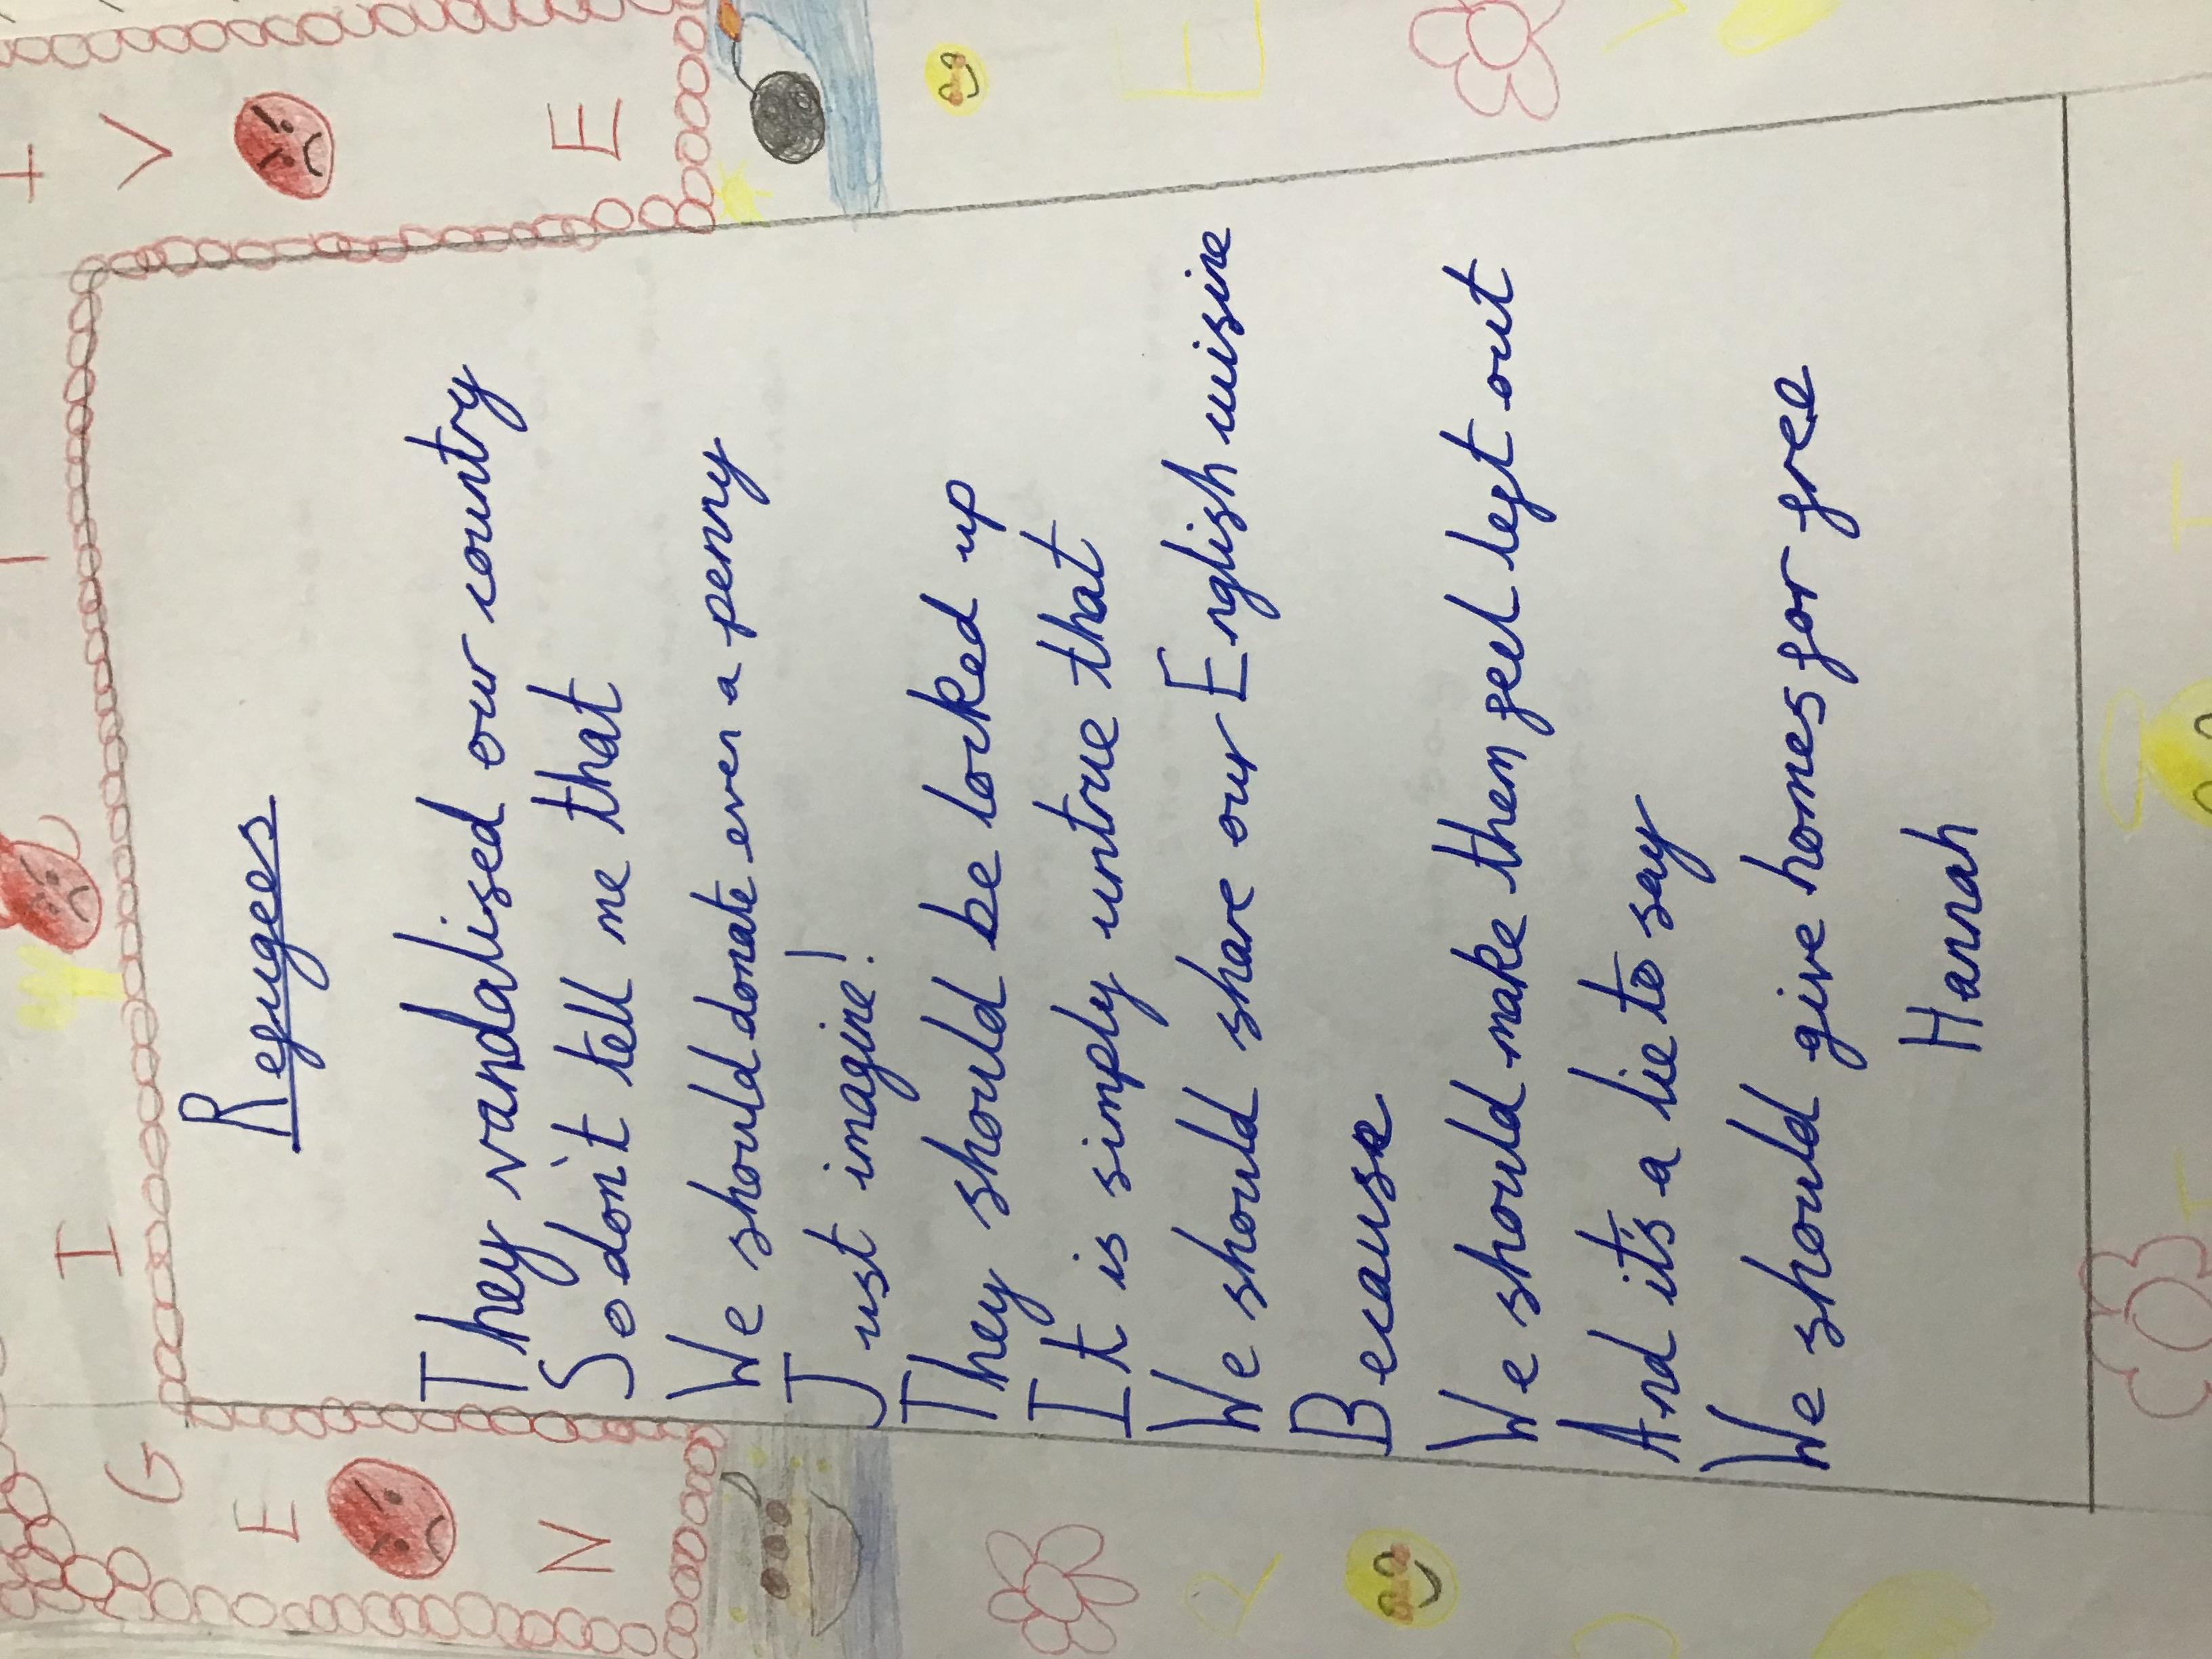 N E G I T V E
Refuges
They vandalised our country
So don't tell me that
We should donate even a penny
Just imagine!
They should be locked up
It is simply untrue that
We should share our English cuisine
Because
We should make them feel left out
And it's a lie to say
We should give homes for free
Hannah